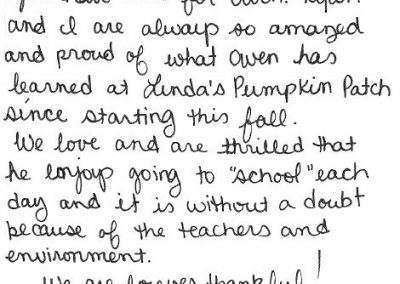 for Owen. Ryan
and I are always so amazed
and proud of what Owen has
learned at Linda's Pumpkin Patch
since starting this fall.
We love and are thrilled that
he enjoys going to "school" each
day and it is without a doubt
because of the teachers and
environment.
We are forever thankful!